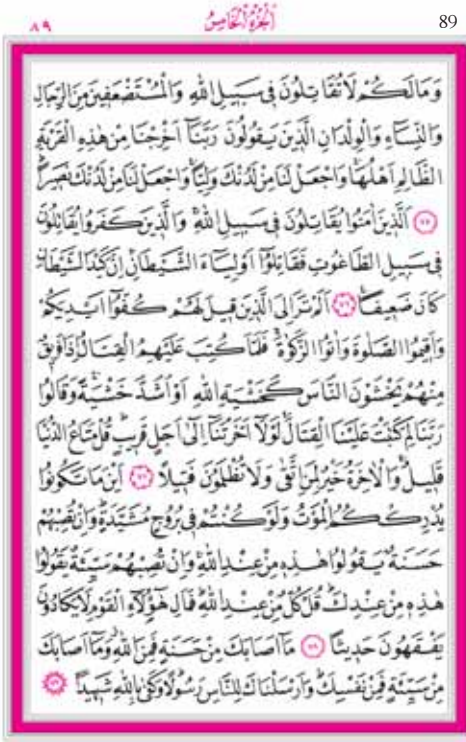 ٨٩ اَلْجُزْءُ الْخَامِسُ 89
وَمَا لَكُمْ لَا تُقَاتِلُونَ فِى سَبِيلِ اللّٰهِ وَالْمُسْتَضْعَفِينَ مِنَ الرِّجَالِ
وَالنِّسَٓاءِ وَالْوِلْدَانِ الَّذِينَ يَقُولُونَ رَبَّنَٓا اَخْرِجْنَا مِنْ هٰذِهِ الْقَرْيَةِ
الظَّالِمِ اَهْلُهَاۚ وَاجْعَلْ لَنَا مِنْ لَدُنْكَ وَلِيًّاۚ وَاجْعَلْ لَنَا مِنْ لَدُنْكَ نَصِيرًاۜ
﴿٧٥﴾ اَلَّذِينَ اٰمَنُوا يُقَاتِلُونَ فِى سَبِيلِ اللّٰهِۚ وَالَّذِينَ كَفَرُوا يُقَاتِلُونَ
فِى سَبِيلِ الطَّاغُوتِ فَقَاتِلُٓوا اَوْلِيَٓاءَ الشَّيْطَانِۚ اِنَّ كَيْدَ الشَّيْطَانِ
كَانَ ضَعِيفًا۟ ﴿٧٦﴾ اَلَمْ تَرَ اِلَى الَّذِينَ قِيلَ لَهُمْ كُفُّٓوا اَيْدِيَكُمْ
وَاَقِيمُوا الصَّلٰوةَ وَاٰتُوا الزَّكٰوةَۚ فَلَمَّا كُتِبَ عَلَيْهِمُ الْقِتَالُ اِذَا فَرِيقٌ
مِنْهُمْ يَخْشَوْنَ النَّاسَ كَخَشْيَةِ اللّٰهِ اَوْ اَشَدَّ خَشْيَةًۚ وَقَالُوا
رَبَّنَا لِمَ كَتَبْتَ عَلَيْنَا الْقِتَالَۚ لَوْلَٓا اَخَّرْتَنَٓا اِلٰٓى اَجَلٍ قَرِيبٍۜ قُلْ مَتَاعُ الدُّنْيَا
قَلِيلٌۚ وَالْاٰخِرَةُ خَيْرٌ لِمَنِ اتَّقٰى وَلَا تُظْلَمُونَ فَتِيلًا ﴿٧٧﴾ اَيْنَ مَا تَكُونُوا
يُدْرِكْكُمُ الْمَوْتُ وَلَوْ كُنْتُمْ فِى بُرُوجٍ مُشَيَّدَةٍۜ وَاِنْ تُصِبْهُمْ
حَسَنَةٌ يَقُولُوا هٰذِهِ مِنْ عِنْدِ اللّٰهِۚ وَاِنْ تُصِبْهُمْ سَيِّئَةٌ يَقُولُوا
هٰذِهِ مِنْ عِنْدِكَۜ قُلْ كُلٌّ مِنْ عِنْدِ اللّٰهِۜ فَمَالِ هٰٓؤُ۬لَٓاءِ الْقَوْمِ لَا يَكَادُونَ
يَفْقَهُونَ حَدِيثًا ﴿٧٨﴾ مَٓا اَصَابَكَ مِنْ حَسَنَةٍ فَمِنَ اللّٰهِۘ وَمَٓا اَصَابَكَ
مِنْ سَيِّئَةٍ فَمِنْ نَفْسِكَۜ وَاَرْسَلْنَاكَ لِلنَّاسِ رَسُولًاۜ وَكَفٰى بِاللّٰهِ شَهِيدًا ﴿٧٩﴾